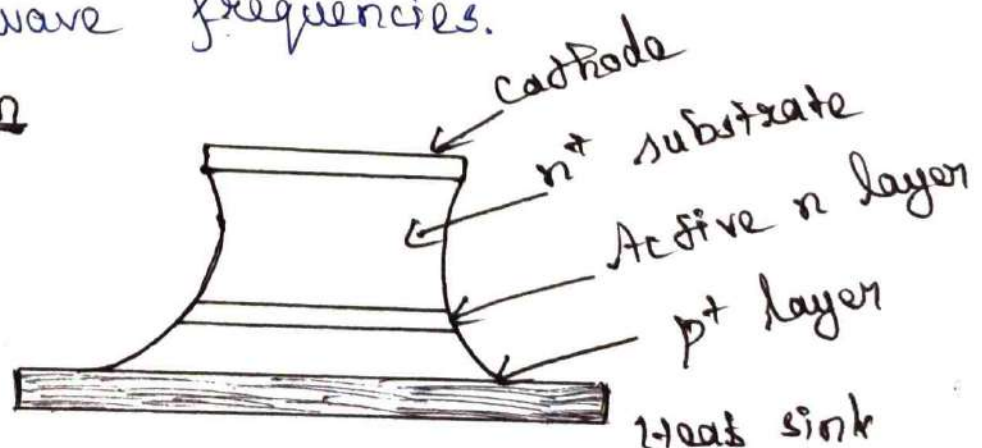 wave frequencies.
cathode
n+ substrate
Active n layer
p+ layer
Heat sink